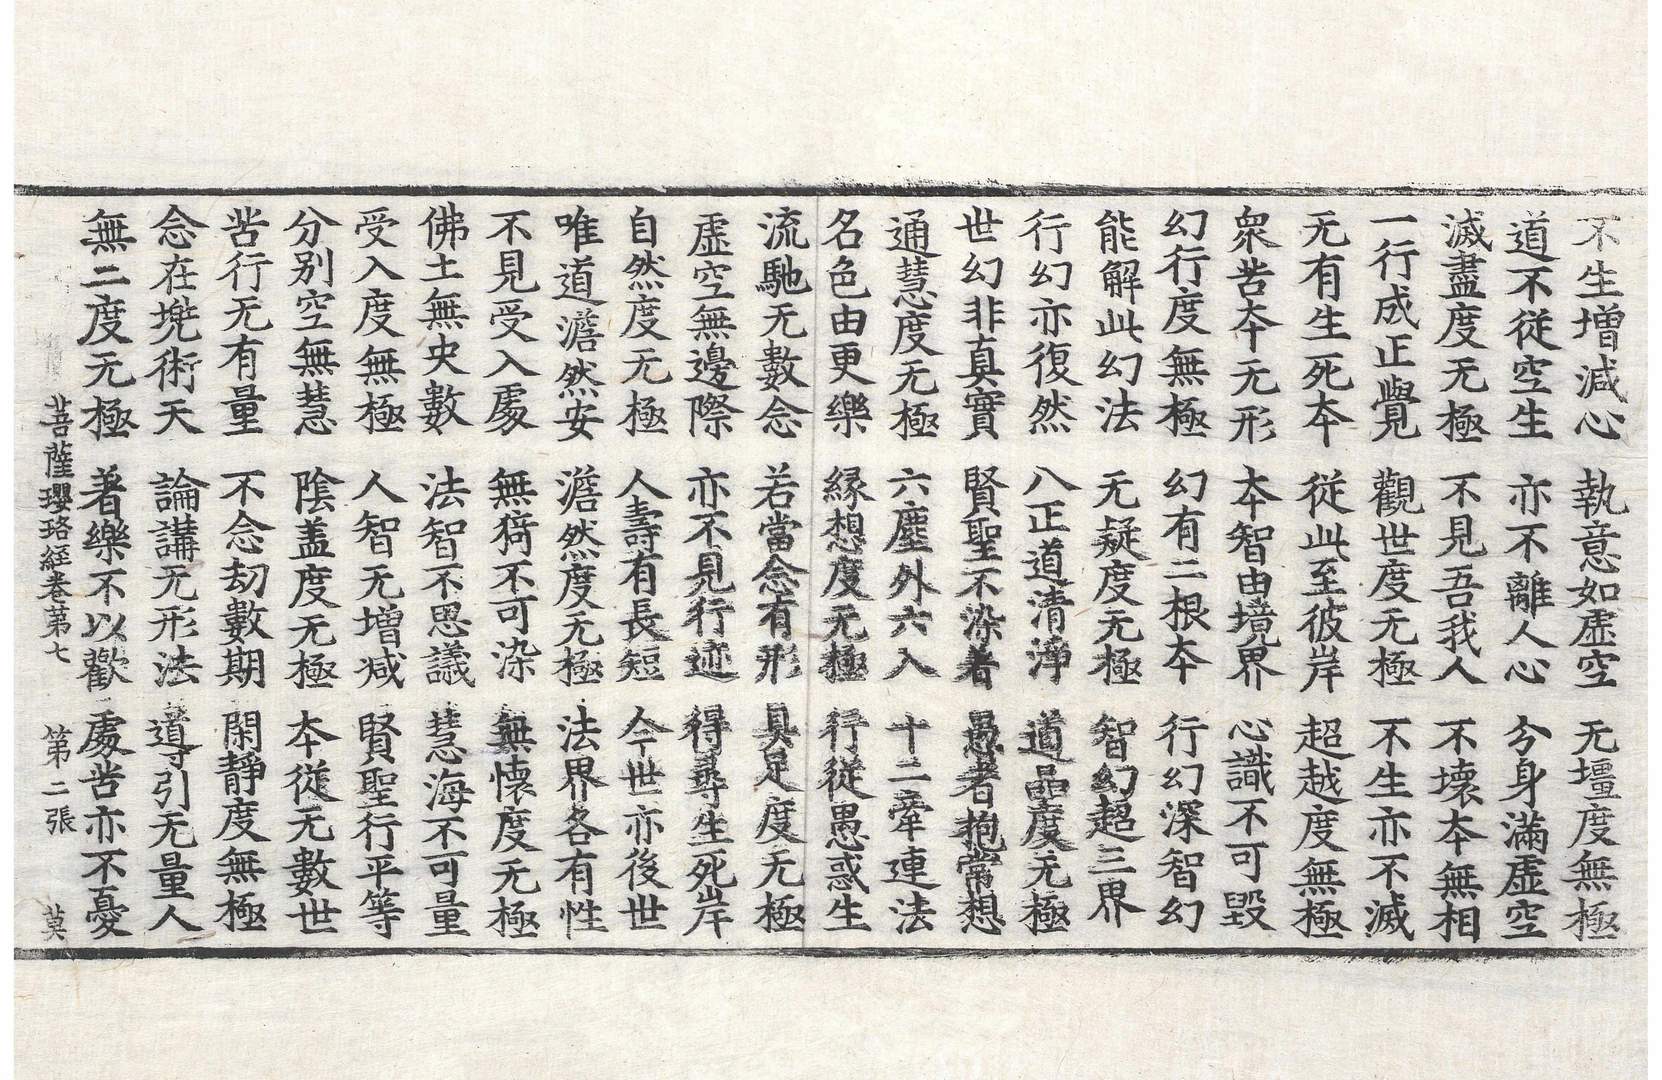 不生增減心 執意如虛空 无壃度無極
道不從空生 亦不離人心 分身滿虛空
滅盡度无極 不見吾我人 不壞夲無相
一行成正覺 觀世度无極 不生亦不滅
无有生死夲 從此至彼岸 超越度無極
衆苦夲无形 夲智由境界 心識不可毀
幻行度無極 幻有二根夲 行幻深智幻
能解此幻法 无疑度无極 智幻超三界
行幻亦復然 八正道清淨 道品度无極
世幻非真實 賢聖不染著 愚者抱常想
通慧度无極 六塵外六入 十二牽連法
名色由更樂 縁想度无極 行從愚惑生
流馳无數念 若當念有形 具足度无極
虛空無邊際 亦不見行迹 得尋生死岸
自然度无極 人壽有長短 今世亦後世
唯道澹然安 澹然度无極 法界各有性
不見受入處 無猗不可染 無懷度无極
佛土無央數 法智不思議 慧海不可量
受入度無極 人智无增减 賢聖行平等
分別空無慧 陰盖度无極 夲從无數世
苦行无有量 不念劫數期 閑靜度無極
念在兠術天 論講无形法 道引无量人
無二度无極 著樂不以歡 處苦亦不憂
菩薩瓔珞經卷第七 第二張 莫